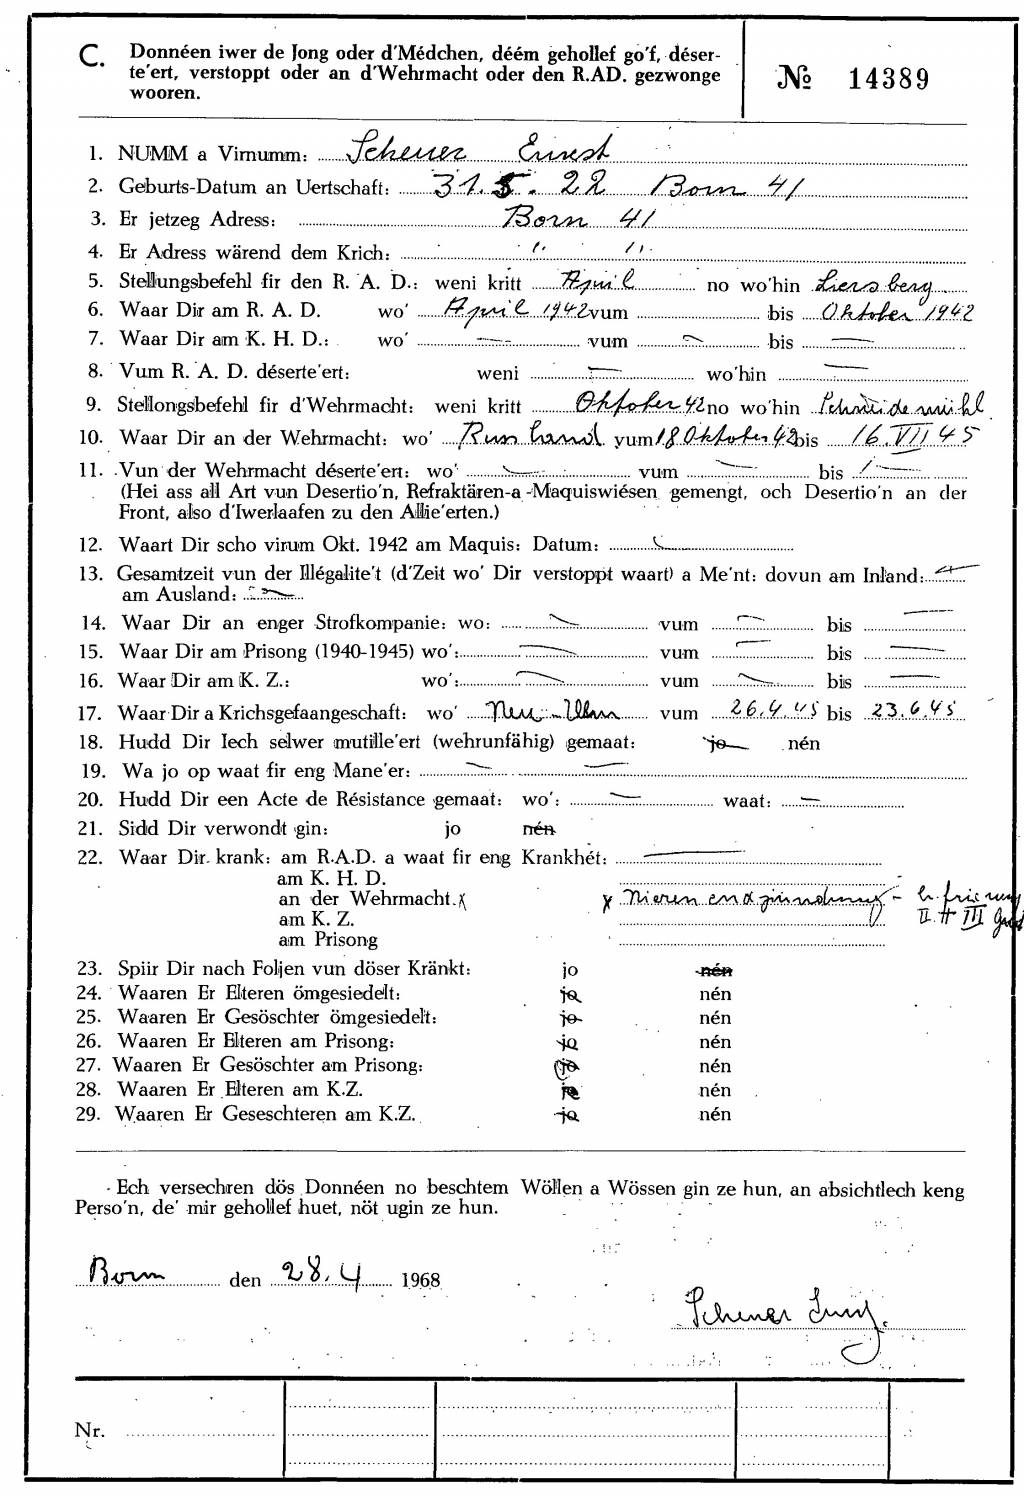 C. Donnéen iwer de Jong oder d'Médchen, déém gehollef go'f, déser-
te'ert, verstoppt oder an d'Wehrmacht oder den R.AD. gezwonge
wooren.
№ 14389
1. NUMM a Virnumm: Scheuer Ernest
2. Geburts-Datum an Uertschaft: 31. 5. 22 Born 41
3. Er jetzeg Adress: Born 41
4. Er Adress wärend dem Krich: " "
5. Stellungsbefehl fir den R. A. D.: weni kritt April no wo'hin Liersberg
6. Waar Dir am R. A. D. wo' April 1942 vum bis Oktober 1942
7. Waar Dir am K. H. D.: wo' — vum — bis —
8. Vum R. A. D. déserte'ert: weni — wo'hin —
9. Stellongsbefehl fir d'Wehrmacht: weni kritt Oktober 42 no wo'hin Schneidemühl
10. Waar Dir an der Wehrmacht: wo' Russland vum 18 Oktober 42 bis 16. VII 45
11. Vun der Wehrmacht déserte'ert: wo' — vum — bis —
(Hei ass all Art vun Desertio'n, Refraktären-a -Maquiswiésen gemengt, och Desertio'n an der
Front, also d'Iwerlaafen zu den Allie'erten.)
12. Waart Dir scho virum Okt. 1942 am Maquis: Datum: —
13. Gesamtzeit vun der Illégalite't (d'Zeit wo' Dir verstoppt waart) a Me'nt: dovun am Inland: —
am Ausland: —
14. Waar Dir an enger Strofkompanie: wo: — vum — bis —
15. Waar Dir am Prisong (1940-1945) wo': — vum — bis —
16. Waar Dir am K. Z.: wo': — vum — bis —
17. Waar Dir a Krichsgefaangeschaft: wo' Neu-Ulm vum 26.4.45 bis 23.6.45
18. Hudd Dir Iech selwer mutille'ert (wehrunfähig) gemaat: jo nén
19. Wa jo op waat fir eng Mane'er: — —
20. Hudd Dir een Acte de Résistance gemaat: wo': — waat: —
21. Sidd Dir verwondt gin: jo nén
22. Waar Dir krank: am R.A.D. a waat fir eng Krankhét: —
am K. H. D.
an der Wehrmacht. x x Nierenendzündung - Erfrierung
am K. Z. II. + III
am Prisong
23. Spiir Dir nach Foljen vun döser Kränkt: jo nén
24. Waaren Er Elteren ömgesiedelt: jo nén
25. Waaren Er Gesöschter ömgesiedelt: jo nén
26. Waaren Er Elteren am Prisong: jo nén
27. Waaren Er Gesöschter am Prisong: jo nén
28. Waaren Er Elteren am K.Z. jo nén
29. Waaren Er Geseschteren am K.Z. jo nén
Ech versechren dös Donnéen no beschtem Wöllen a Wössen gin ze hun, an absichtlech keng
Perso'n, de' mir gehollef huet, nöt ugin ze hun.
Born den 28.4 1968
Scheuer Ernest
Nr.